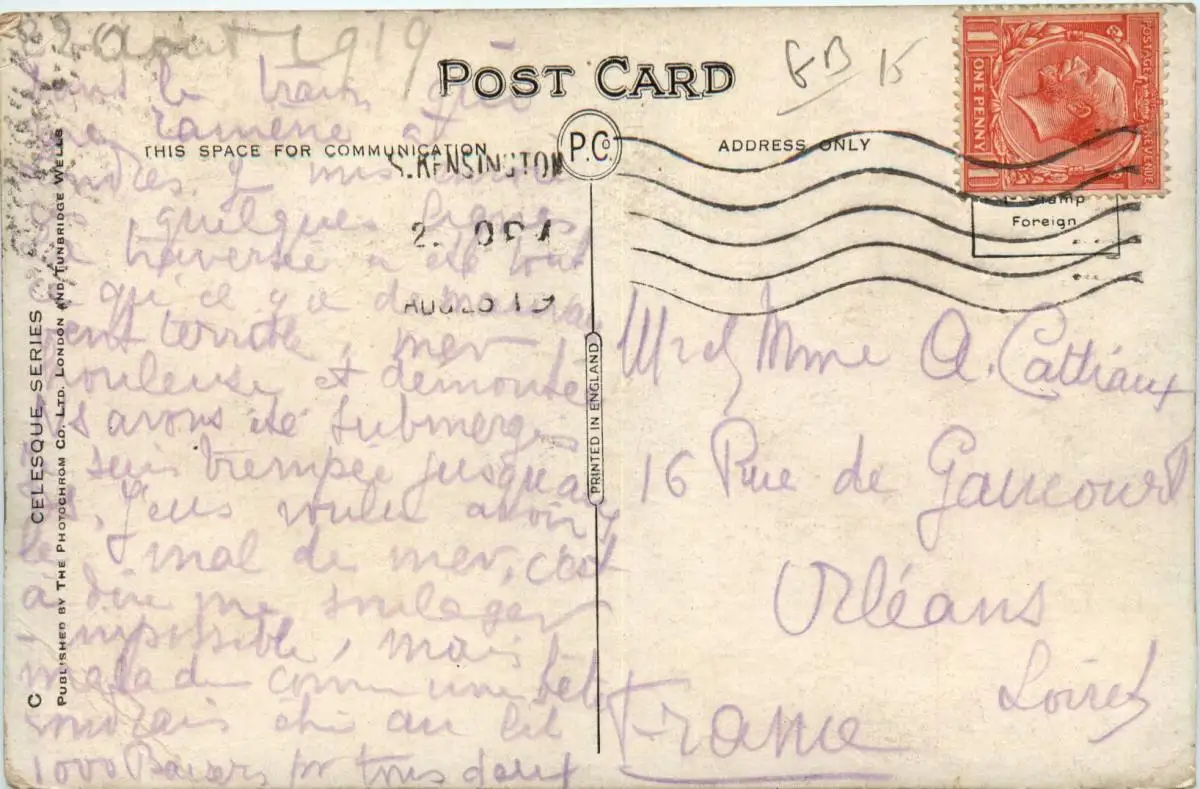 22 août 1919
POST CARD
GB 15
THIS SPACE FOR COMMUNICATION
P.Co.
ADDRESS ONLY
POSTAGE REVENUE
ONE PENNY
Stamp
Foreign
S. KENSINGTON
AUG 23 19
dans le train qui
me ramène à
Londres, j
quelques lignes
La traversée a été tout
ce qu'il y a de mauvais
vent terrible, mer
houleuse et démontée
ns avons été submergés
je suis trempée jusqu'aux
os, j'eus voulu avoir
le mal de mer, c'est
à dire me soulager
impossible, mais
malade comme une bête
été au lit
1000 Baisers pr tous deux
Mr et Mme A. Cattiaux
16 Rue de Gaucourt
Orléans
Loiret
France
CELESQUE SERIES
C PUBLISHED BY THE PHOTOCHROM CO. LTD. LONDON AND TUNBRIDGE WELLS
PRINTED IN ENGLAND